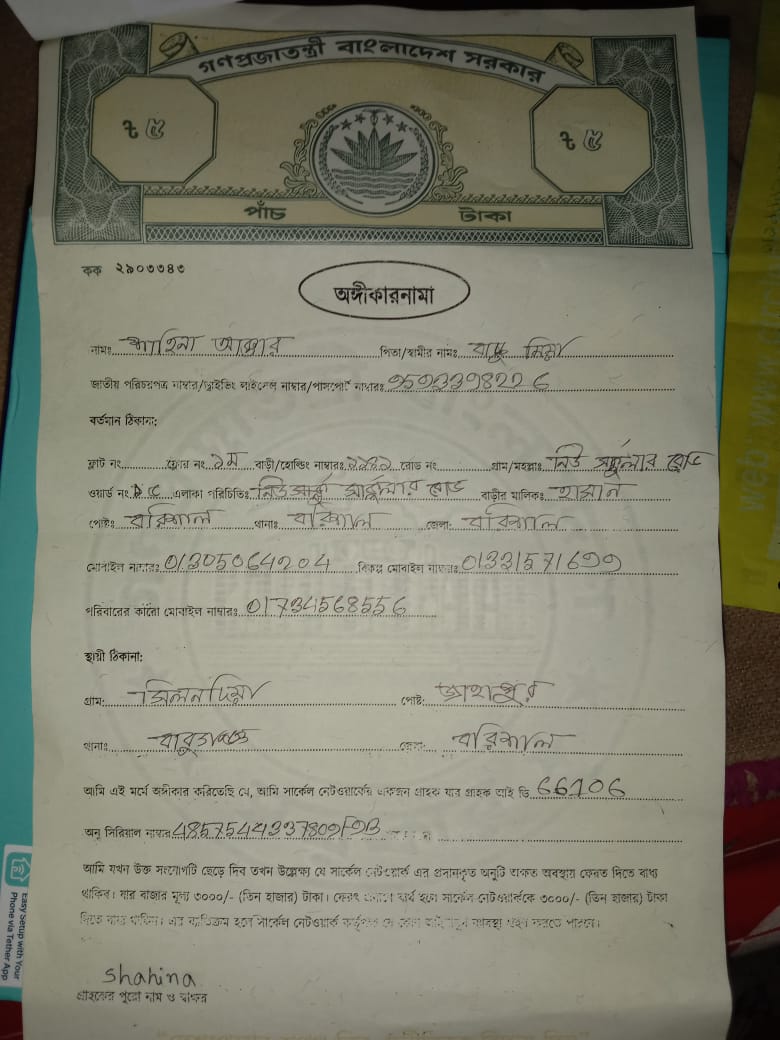 গণপ্রজাতন্ত্রী বাংলাদেশ সরকার
৳ ৫ ৳ ৫
পাঁচ টাকা
কক ২৯০৩৩৪৩
অঙ্গীকারনামা
নামঃ শাহিনা আক্তার পিতা/স্বামীর নামঃ বাচ্চু মিয়া
জাতীয় পরিচয়পত্র নাম্বার/ড্রাইভিং লাইসেন্স নাম্বার/পাসপোর্ট নাম্বারঃ
বর্তমান ঠিকানা:
ফ্লাট নং ফ্লোর নং ১ম বাড়ী/হোল্ডিং নাম্বারঃ রোড নং গ্রাম/মহল্লাঃ নিউ সার্কুলার রোড
ওয়ার্ড নং এলাকা পরিচিতিঃ নিউ সার্কুলার রোড বাড়ীর মালিকঃ হাসান
পোষ্টঃ বরিশাল থানাঃ বরিশাল জেলা: বরিশাল
মোবাইল নাম্বারঃ 01305064204 বিকল্প মোবাইল নাম্বারঃ
পরিবারের কারো মোবাইল নাম্বারঃ 01734568556
স্থায়ী ঠিকানা:
গ্রাম: মিলনদিয়া পোষ্ট:
থানাঃ বাবুগঞ্জ জেলা: বরিশাল
আমি এই মর্মে অঙ্গীকার করিতেছি যে, আমি সার্কেল নেটওয়ার্কের একজন গ্রাহক যার গ্রাহক আই ডি 66106
অনু সিরিয়াল নাম্বার
আমি যখন উক্ত সংযোগটি ছেড়ে দিব তখন উল্লেক্ষ্য যে সার্কেল নেটওয়ার্ক এর প্রদানকৃত অনুটি অক্ষত অবস্থায় ফেরত দিতে বাধ্য
থাকিব। যার বাজার মূল্য ৩০০০/- (তিন হাজার) টাকা। ফেরৎ ব্যর্থ হলে সার্কেল নেটওয়ার্ককে ৩০০০/- (তিন হাজার) টাকা
দিতে বাধ্য থাকিব। এর ব্যতিক্রম হলে সার্কেল নেটওয়ার্ক কর্তৃপক্ষ যে কোন ব্যবস্থা গ্রহন করতে পারবে।
Shahina
গ্রাহকের পুরো নাম ও স্বাক্ষর
Easy Setup with Your
Phone via Tether App